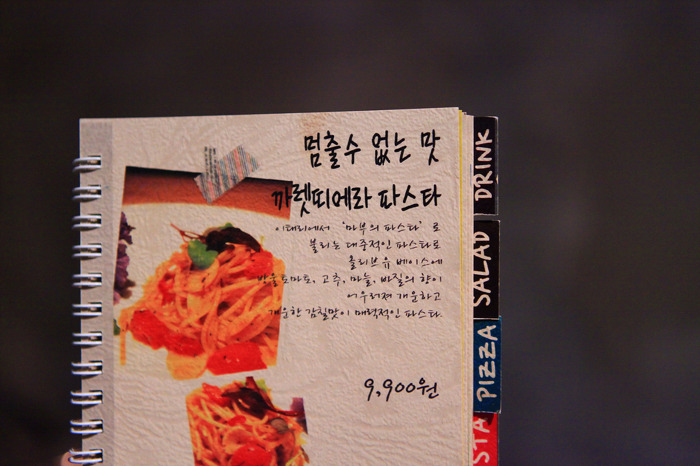 멈출수 없는 맛
까렛띠에라 파스타
이태리에서 '마부의 파스타' 로
불리는 대중적인 파스타로
올리브유 베이스에
방울토마토, 고추, 마늘, 바질의 향이
어우러져 개운하고
개운한 감칠맛이 매력적인 파스타.
9,900원
DRINK
SALAD
PIZZA
STA